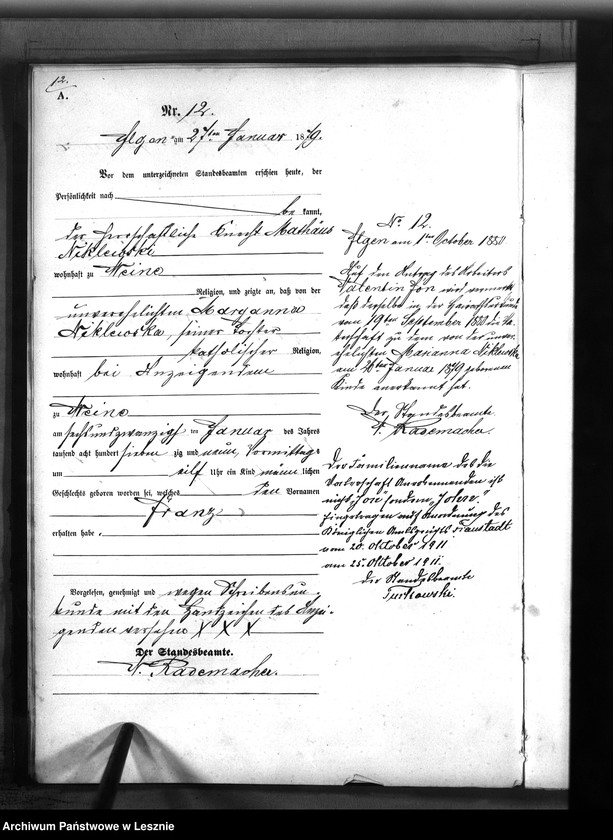 12.
A.
Nr. 12.
Ilgen am 27ten Januar 1879.
Vor dem unterzeichneten Standesbeamten erschien heute, der
Persönlichkeit nach
be kannt,
der herrschaftliche Knecht Mathäus
Niklewski
wohnhaft zu Neine
Religion, und zeigte an, daß von der
unverehelichten Maryanna
Niklewska, seiner Tochter
katholischer Religion,
wohnhaft bei Anzeigendem
zu Neine
am sechsundzwanzigsten Januar des Jahres
tausend acht hundert sieben zig und neun, Vormittags
um eilf Uhr ein Kind männlichen
Geschlechts geboren worden sei, welches den Vornamen
Franz
erhalten habe.
Vorgelesen, genehmigt und wegen Schreibensun-
kunde mit den Handzeichen des Anzei-
genden versehn X X X
Der Standesbeamte.
Rademacher.
No. 12.
Ilgen am 1ten October 1880
Auf den Antrag des Arbeiters
Valentin wird vermerkt
daß derselbe in der Heirathsurkunde
vom 19ten September 1880 die Va-
terschaft zu dem von der unver-
ehelichten Marianna Niklewska
am 26ten Januar 1879 geborenen
Kinde anerkannt hat.
Der Standesbeamte.
Rademacher.
Der Familienname des die
Vaterschaft Anerkennenden ist
nicht sondern
Eingetragen auf Anordnung des
Königlichen Amtsgerichts Fraustadt
vom 20. Oktober 1911
am 25. Oktober 1911.
Der Standesbeamte
Archiwum Państwowe w Lesznie